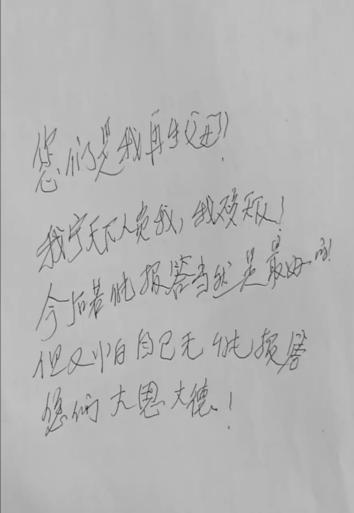 您们是我再生父母!
我宁天下人负我，我不负天下人!
今后若能报答当然是最好的!
但又怕自己无能报答
您们大恩大德!